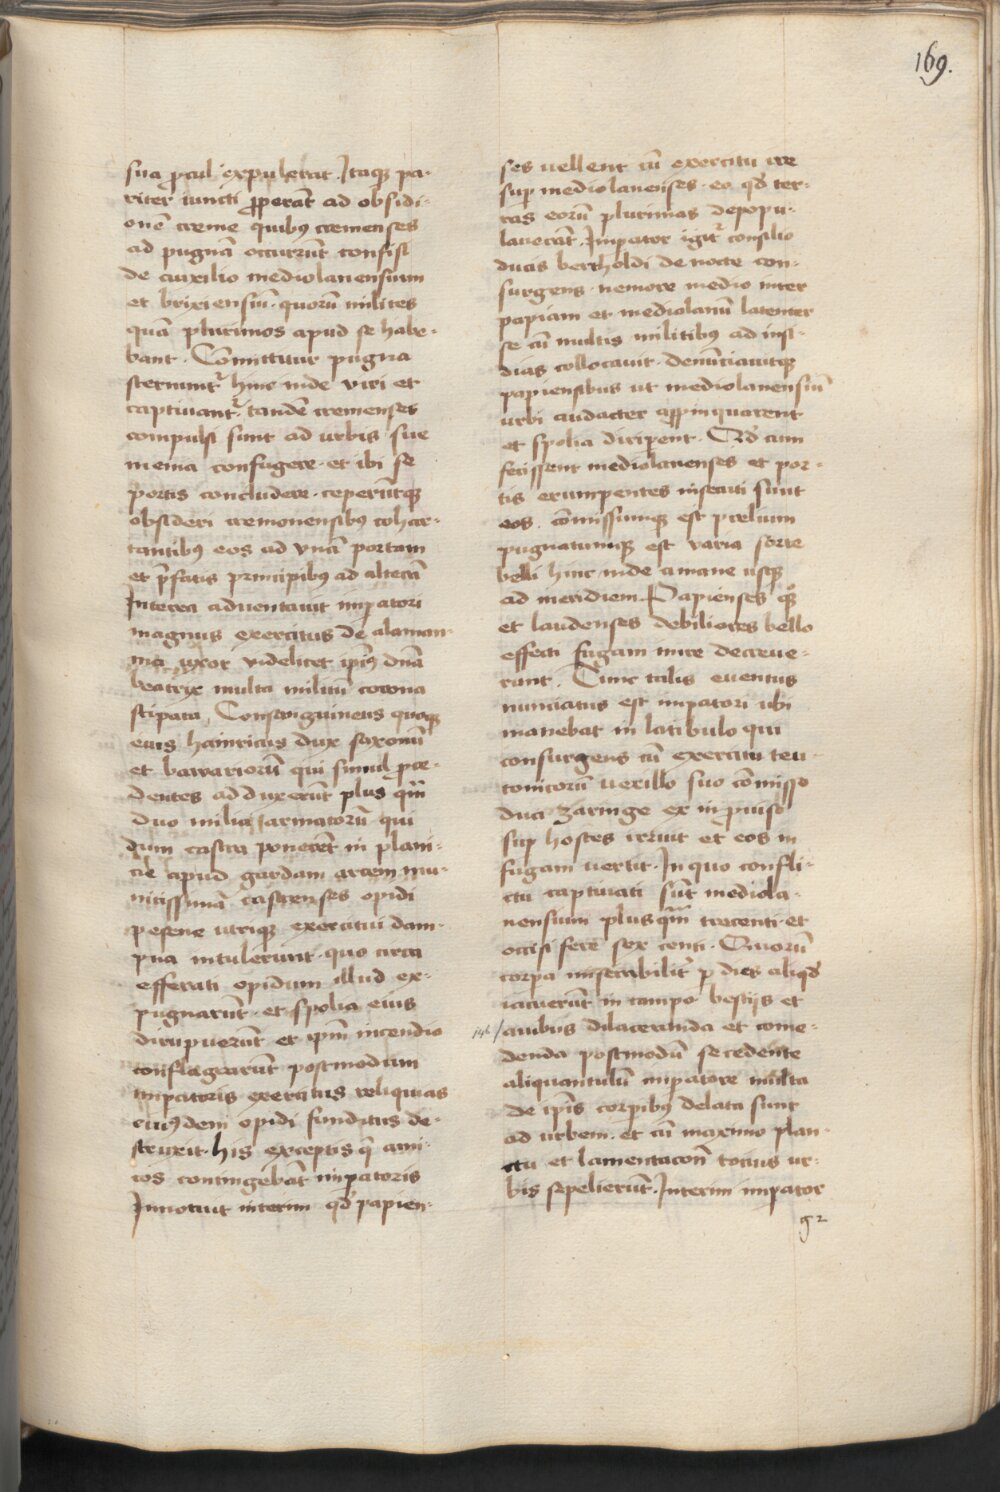 169.
sua procul expulerat. Itaqꝫ pa-
riter iuncti ꝓperāt ad obsidi-
onē creme quibꝰ cremenses
ad pugnā occurrūt confisi
de auxilio mediolanensium
et brixiensiū. quorū milites
quā plurimos apud se habe-
bant. Cōmittitur pugna
sternunt᷑ hinc inde viri et
captiuant᷑. tandē cremenses
compulsi sunt ad urbis sue
menia confugere. et ibi se
portis concludere. ceperūtqꝫ
obsideri cremonensibꝰ cohor-
tantibꝰ eos ad vnā portam
et p̄fatis principibꝰ ad alterā
Interea aduentauit imꝑatori
magnus exercitus de aleman-
nia uxor videlicet ip̄iꝰ dn̄a
beatrix multa militū corona
stipata, Consanguineus quoqꝫ
eius hainricus dux saxonū
et bawariorū qui simul ꝓce-
dentes adduxerūt plus qm̄
duo milia armatorū qui
dum castra ponerēt in plani-
cie apud gardam arcem mu-
nitissimā castrenses opidi
pesene utriqꝫ exercitui dam-
pna intulerunt. quo circa
efferati opidum illud ex-
pugnarūt. et spolia eius
diripuerūt et ip̄m incendio
conflagrarūt postmodum
imꝑatoris exercitus reliquias
eiusdem opidi funditus de-
struxit. his exceptis q̄ ami-
cos contingebāt imꝑatoris
Innotuit interim qd̕ papien-
ses uellent cū exercitu ire
suꝑ mediolanenses. eo qd̕ ter-
ras eorū plurimas depopu-
lauerāt. Imꝑator igit᷑ consilio
ducis bertholdi de nocte con-
surgens. nemore medio inter
papiam et mediolanū latenter
se cū multis militibꝰ ad insi-
dias collocauit. denūciauitqꝫ
papiensibus ut mediolanensiū
urbi audacter aꝓpinquarent
et spolia diriperent. Qd̕ cum
fecissent mediolanenses et por-
tis erumpentes insecuti sunt
eos. cōmissumqꝫ est prelium
pugnatumqꝫ est varia sorte
belli hinc inde a mane usqꝫ
ad meridiem. Papienses qꝫ
et laudenses debiliores bello
effecti fugam inire decreue-
runt. Tunc talis euentus
nunciatus est imꝑatori ubi
manebat in latibulo qui
consurgens cū exercitu teu-
tonicorū uexillo suo cōmisso
duci zaringe ex inꝓuiso
suꝑ hostes irruit et eos in
fugam uertit. In quo confli-
ctu captiuati sūt mediola-
nensium plusqm̄ trecenti. et
occisi fere sex centi. Quorū
corꝑa miserabilit᷑ ꝑ dies aliqd̕
iacuerūt in campo bestijs et
146/ auibus dilaceranda et come-
denda postmodū secedente
aliquantulū imꝑatore multa
de ip̄is corꝑibꝰ delata sunt
ad urbem. et cū maximo plan-
ctu et lamentacōn totius ur-
bis sepelierūt. Interim imꝑator
g2